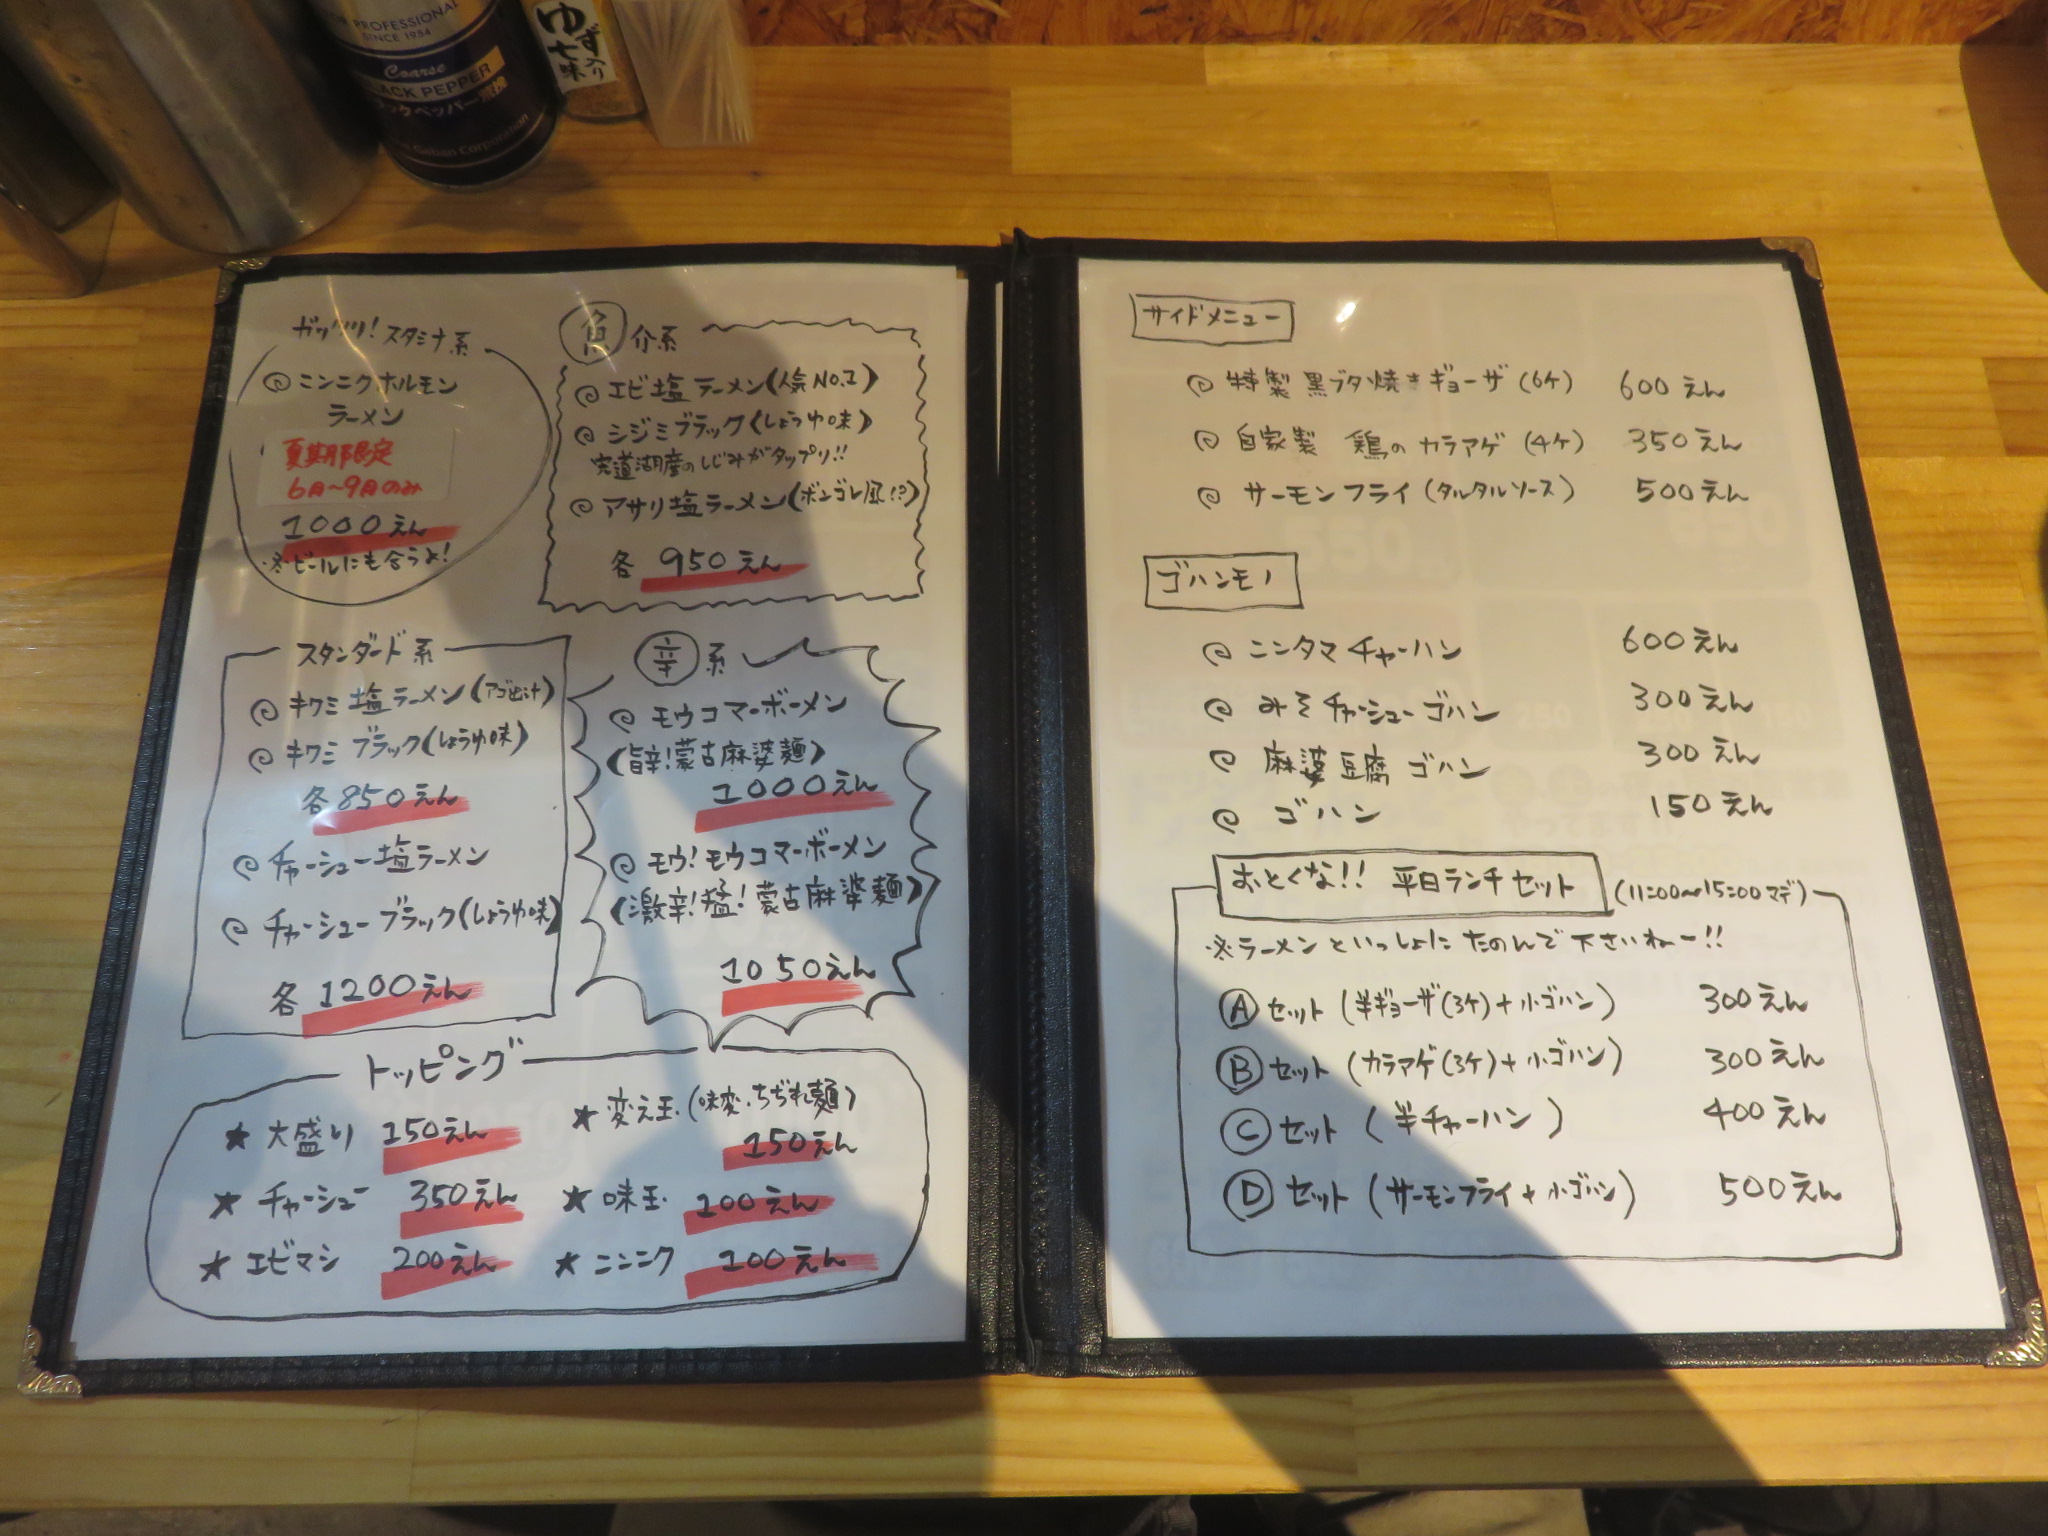 PROFESSIONAL
SINCE 1954
Coarse
BLACK PEPPER
ックペッパー
Gaban Corporation
ゆず入り
七味
ガッツリ！スタミナ系
ニンニクホルモン
ラーメン
夏期限定
6月〜9月のみ
1000えん
※ビールにも合うよ！
魚介系
エビ塩ラーメン(人気No.1)
シジミブラック(しょうゆ味)
宍道湖産のしじみがタップリ!!
アサリ塩ラーメン(ボンゴレ風!?)
各 950えん
スタンダード系
キワミ塩ラーメン(アゴ出汁)
キワミブラック(しょうゆ味)
各850えん
チャーシュー塩ラーメン
チャーシューブラック(しょうゆ味)
各 1200えん
辛系
モウコマーボーメン
(旨辛!蒙古麻婆麺)
1000えん
モウ!モウコマーボーメン
(激辛!猛!蒙古麻婆麺)
1050えん
トッピング
★ 大盛り 150えん
★ 変え玉(味変、ちぢれ麺)
150えん
★ チャーシュー 350えん
★ 味玉 100えん
★ エビマシ 200えん
★ ニンニク 100えん
サイドメニュー
特製 黒ブタ焼きギョーザ(6ケ) 600えん
自家製 鶏のカラアゲ(4ケ) 350えん
サーモンフライ(タルタルソース) 500えん
ゴハンモノ
ニンタマチャーハン 600えん
みそチャーシューゴハン 300えん
麻婆豆腐ゴハン 300えん
ゴハン 150えん
おとくな!! 平日ランチセット (11:00〜15:00マデ)
※ラーメンといっしょにたのんで下さいねー!!
Ⓐセット(半ギョーザ(3ケ)+小ゴハン) 300えん
Ⓑセット(カラアゲ(3ケ)+小ゴハン) 300えん
Ⓒセット(半チャーハン) 400えん
Ⓓセット(サーモンフライ+小ゴハン) 500えん